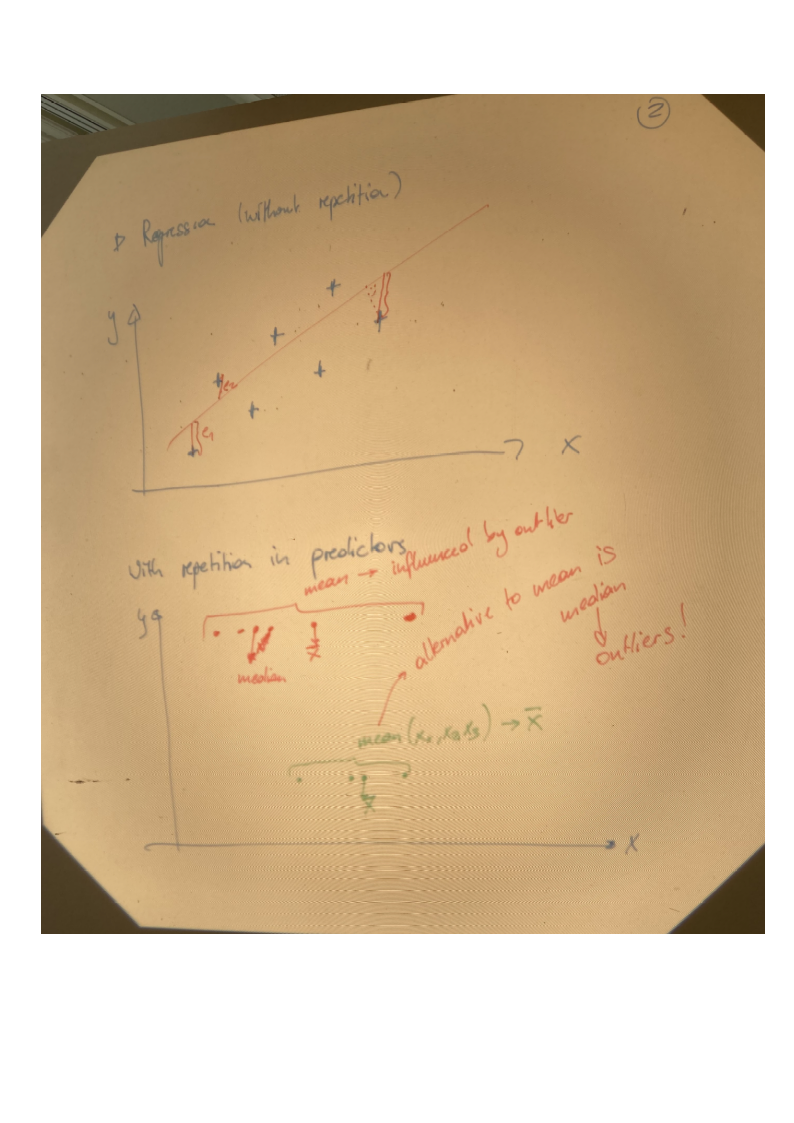 2
Regression (without repetition)
y
e2
e1
x
With repetition in predictors
mean → influenced by outlier
alternative to mean is
median
outliers!
y
x̄
median
→ x̄
x̄
x